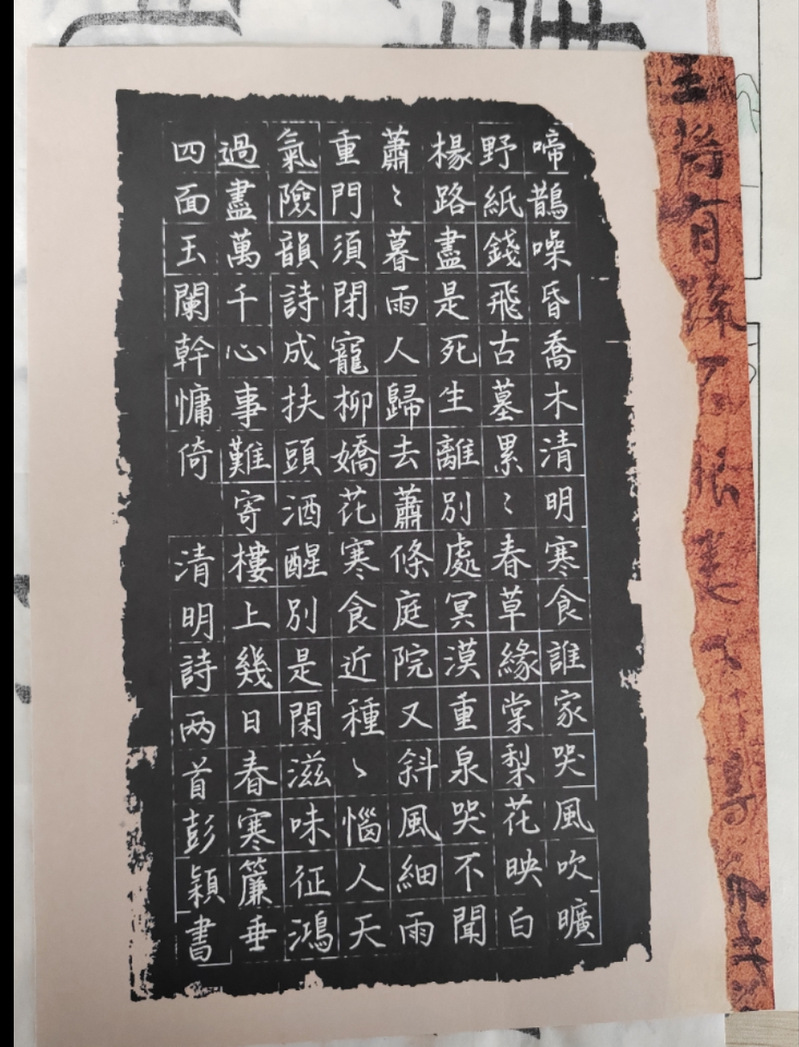 啼鵲噪昏喬木清明寒食誰家哭風吹曠
野紙錢飛古墓累〻春草緣棠梨花映白
楊路盡是死生離別處冥漠重泉哭不聞
蕭〻暮雨人歸去蕭條庭院又斜風細雨
重門須閉寵柳嬌花寒食近種〻惱人天
氣險韻詩成扶頭酒醒別是閑滋味征鴻
過盡萬千心事難寄樓上幾日春寒簾垂
四面玉闌幹慵倚 清明詩两首彭穎書